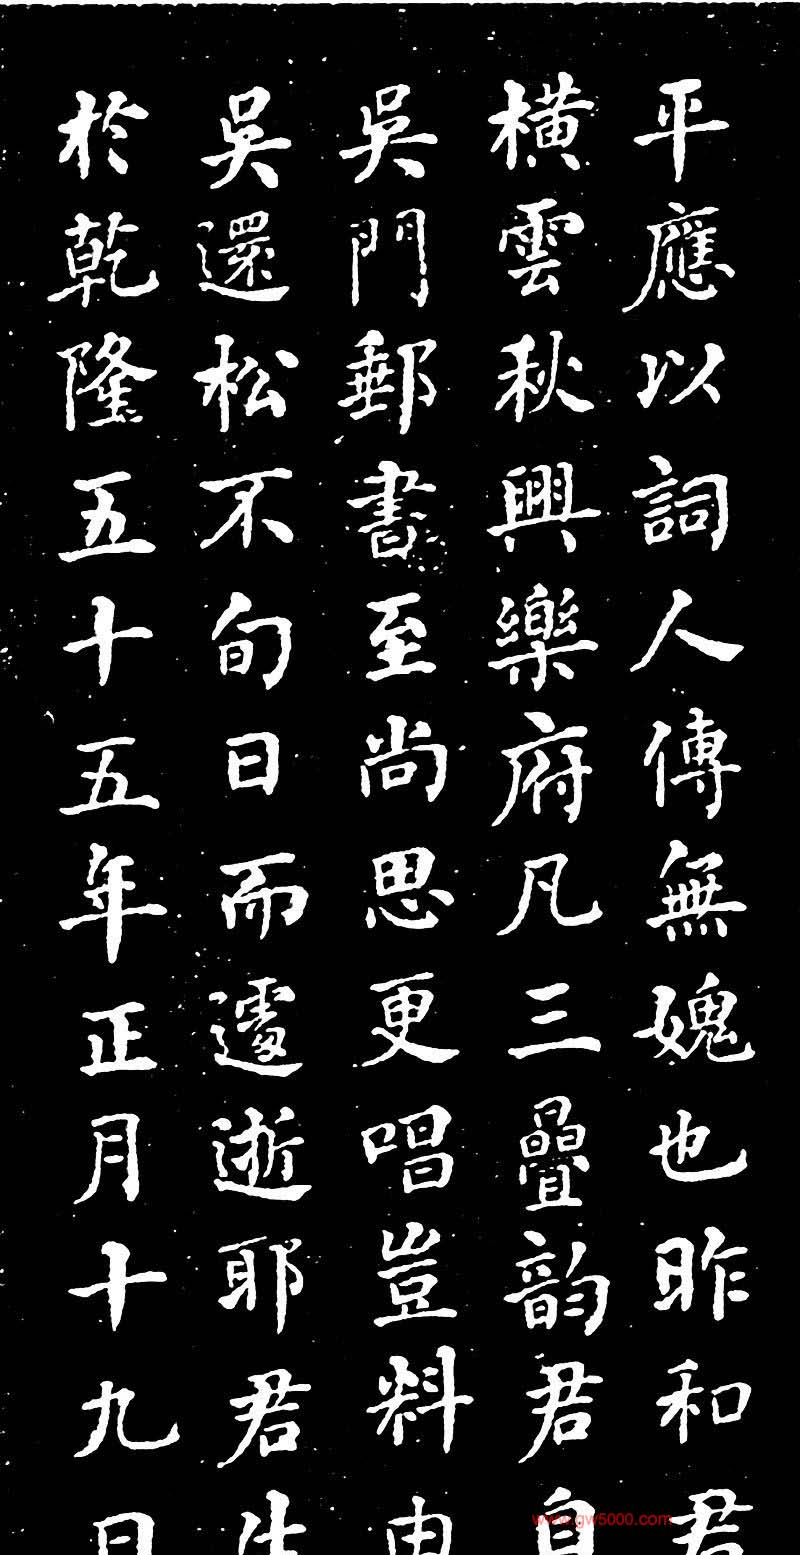 平應以詞人傳無媿也昨和君
橫雲秋興樂府凡三疊韵君自
吳門郵書至尚思更唱豈料由
吳還松不旬日而遽逝耶君生
於乾隆五十五年正月十九日
www.gw5000.com